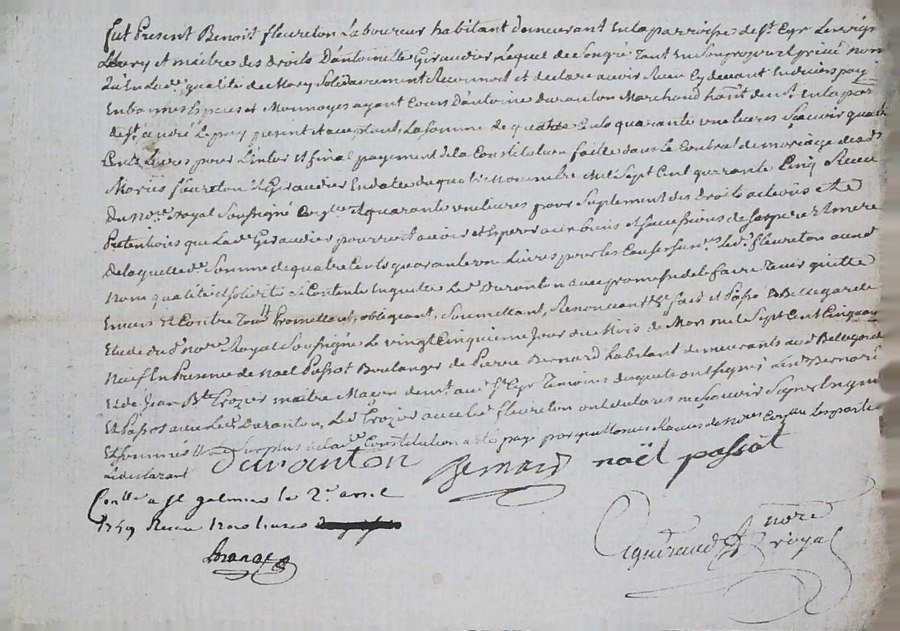 fut Present Benoist fleureton Laboureur habitant demeurant en la parroisse de st Cyr Les vig
Mary et maitre des droits D'antoinette Giraudier Laquel de Son gré Tant en Son propre et privé nom
qu'en Lad. qualité de Mary Solidairement Reconnoit et declare avoir Receu Cy devant en deniers
En bonnes Especes et Monnoyes ayant Cours D'antoine duranton Marchand habt demt en la par
de st andré Le puy present et acceptant La Somme de quatre Cents quarante une Livres Sçavoir quatre
Cents Livres pour L'entier et final payement de la Constitution faitte dans Le Contrat de mariage desds
Mariés fleureton et Giraudier En datte du quatre Novembre mil Sept Cent quarante Cinq Receu
du nore royal Soussigné et quarante une livres pour Suplement des droits actions et
Pretentions que Lade Giraudier pourroit avoir et Esperer aux biens et Successions de Ses pere et mere
de laquelle de Somme de quatre Cents quarante une Livres pour les Causes Sus Led. fleureton aud
Nom qualité et Solidité Se Contente En quitte Led. Duranton avec promesse de le faire Tenir quitte
Envers et Contre Tous Promettant, obligeant, Soumettant, Renonceant &c fait et Passé a Bellegarde
Etude du d. nore Royal Soussigné Le vingt Cinquieme Jour du Mois de Mars mil Sept Cent Cinquan
Neuf En Presence de Noel Passot Boulanger de Pierre Bernard habitant demeurants aud. Bellegarde
et de Jean Bte Trozier maitre Maçon demt au st Cyr Temoins Lesquels ont Signé Led. Bernard
Et Passot avec Led. Duranton, Led. Trozier avec led. fleureton ont declarés ne Sçavoir Signer Enquis
Et Sommés Surplus de lade Constitution a eté payé par quittances Les parties
Le declarant Duranton Bernard noël passot
Conllé a st galmier le 2e avril
1759 Receu trois livres
nore
royal